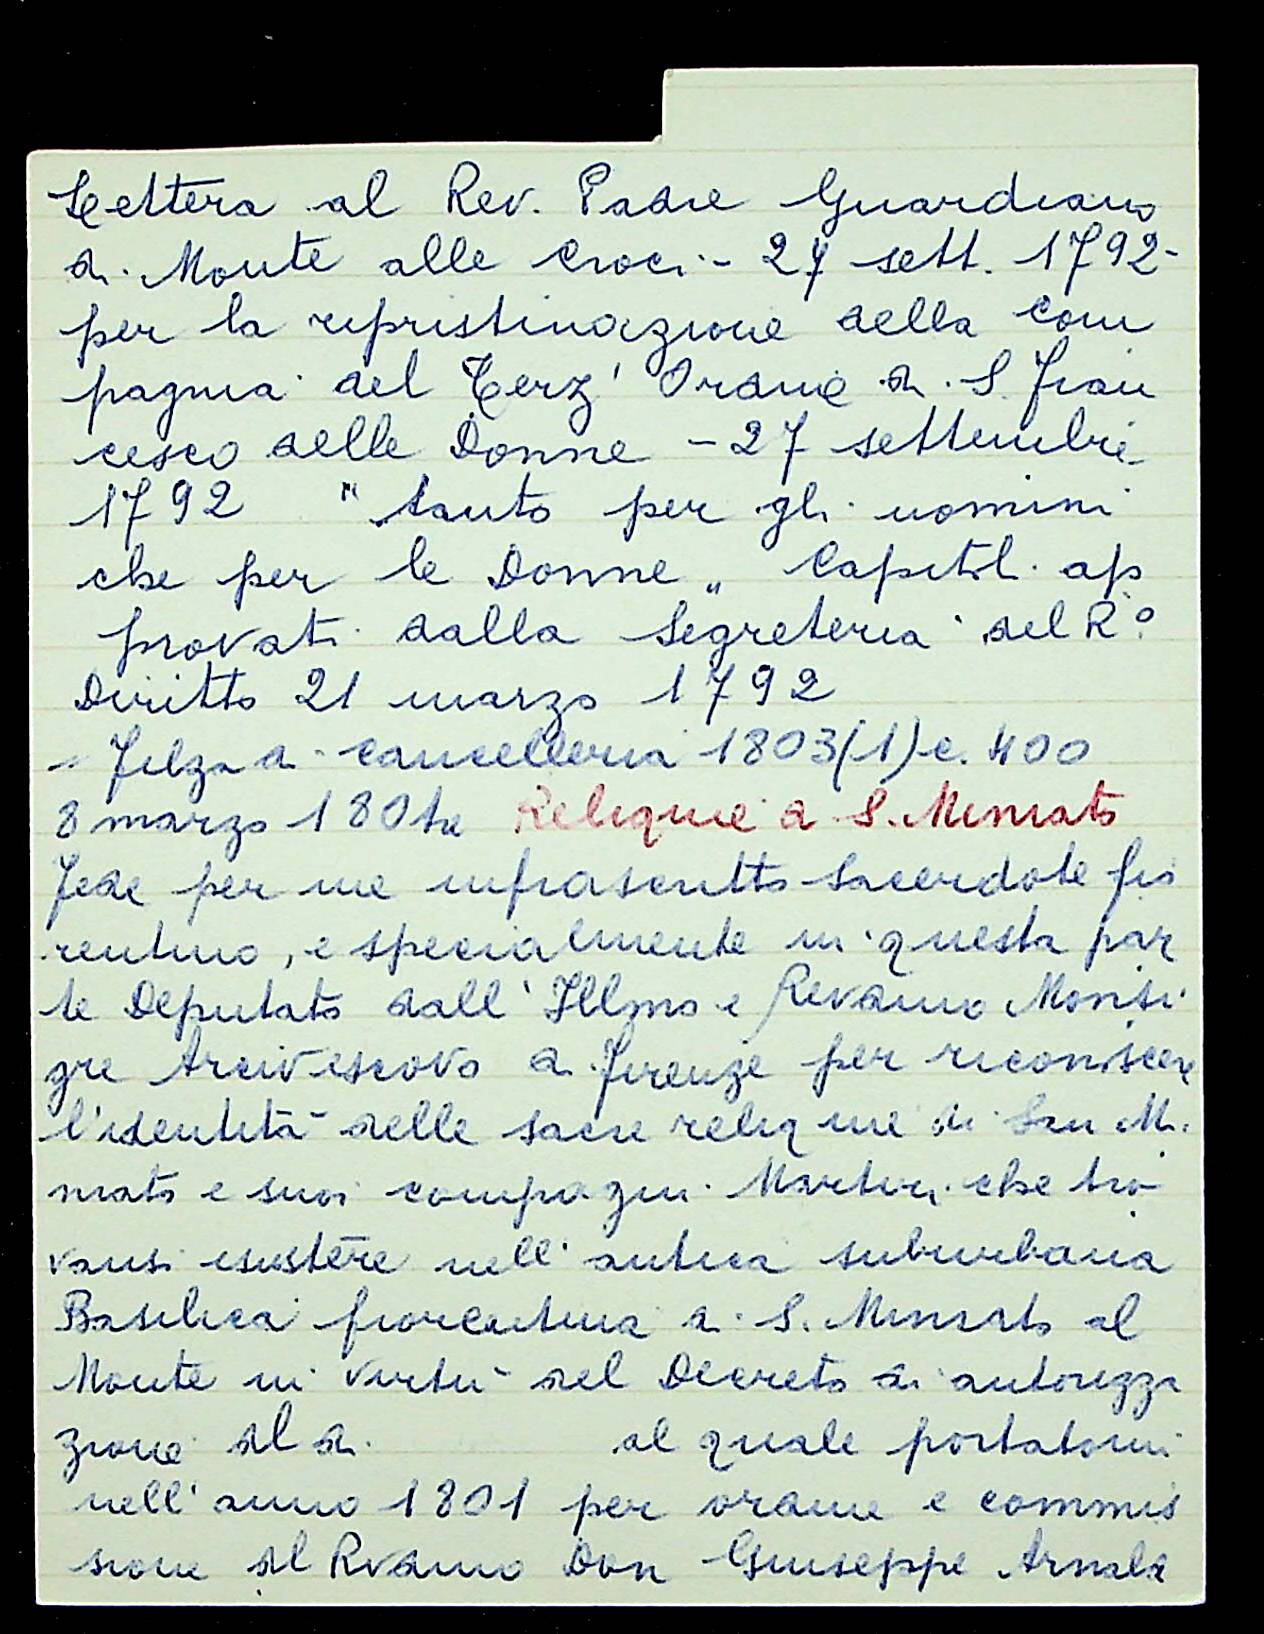 Lettera al Rev. Padre Guardiano
di Monte alle Croci - 27 sett. 1792 -
per la ripristinazione della Com
pagnia del Terz' Ordine di S. Fran
cesco delle Donne - 27 settembre
1792 " tanto per gli uomini
che per le Donne „ Capitoli ap
provati dalla Segreteria del R.º
Diritto 21 marzo 1792
- Filza di Cancelleria 1803 (1) c. 400
8 marzo Reliquie di S. Miniato
Fede per me infrascritto Sacerdote fio
rentino, e specialmente in questa par
te Deputato dall'Illmo e Revdmo Monsi
gre Arcivescovo di Firenze per riconoscere
l'identità delle sacre reliquie di San Mi
niato e suoi compagni Martiri che tro
vansi esistere nell'antica suburbana
Basilica fiorentina di S. Miniato al
Monte in virtù del Decreto di autorizza
zione del di al quale portatomi
nell'anno 1801 per ordine e commis
sione del Rvdmo Don Giuseppe Arnaldi